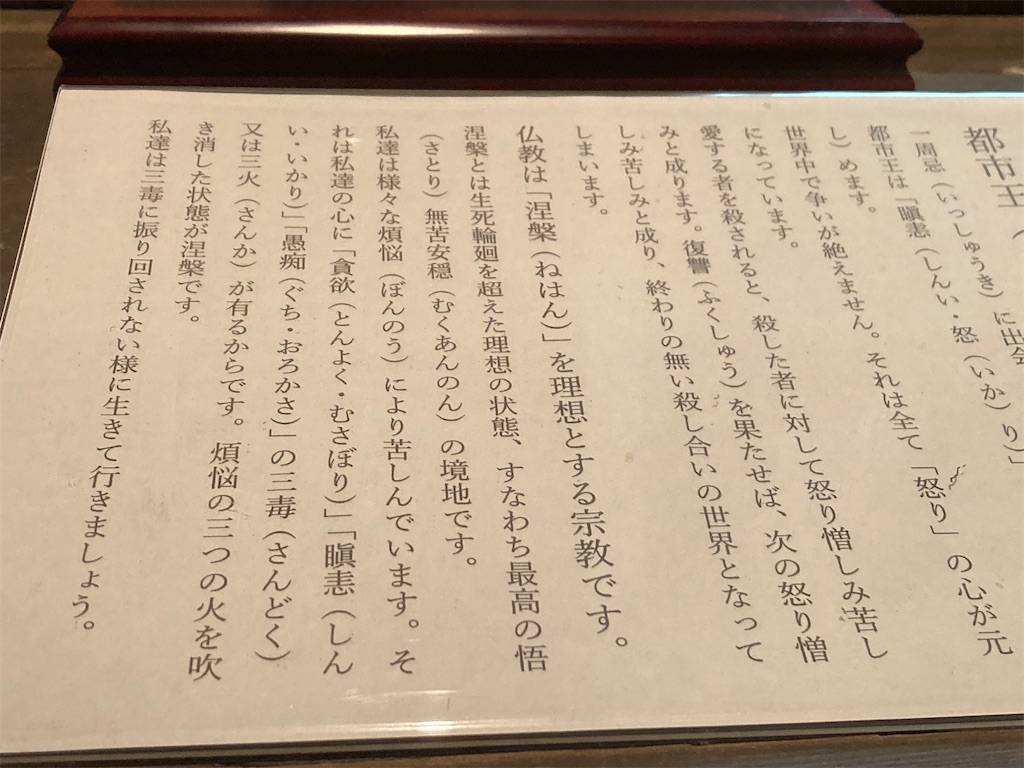 都市王（
一周忌（いっしゅうき）に出会
都市王は「瞋恚（しんい・怒（いか）り）」
し）めます。
世界中で争いが絶えません。それは全て「怒り」の心が元
になっています。
愛する者を殺されると、殺した者に対して怒り憎しみ苦し
みと成ります。復讐（ふくしゅう）を果たせば、次の怒り憎
しみ苦しみと成り、終わりの無い殺し合いの世界となって
しまいます。
仏教は「涅槃（ねはん）」を理想とする宗教です。
涅槃とは生死輪廻を超えた理想の状態、すなわち最高の悟
（さとり）無苦安穏（むくあんのん）の境地です。
私達は様々な煩悩（ぼんのう）により苦しんでいます。そ
れは私達の心に「貪欲（とんよく・むさぼり）」「瞋恚（しん
い・いかり）」「愚痴（ぐち・おろかさ）」の三毒（さんどく）
又は三火（さんか）が有るからです。煩悩の三つの火を吹
き消した状態が涅槃です。
私達は三毒に振り回されない様に生きて行きましょう。